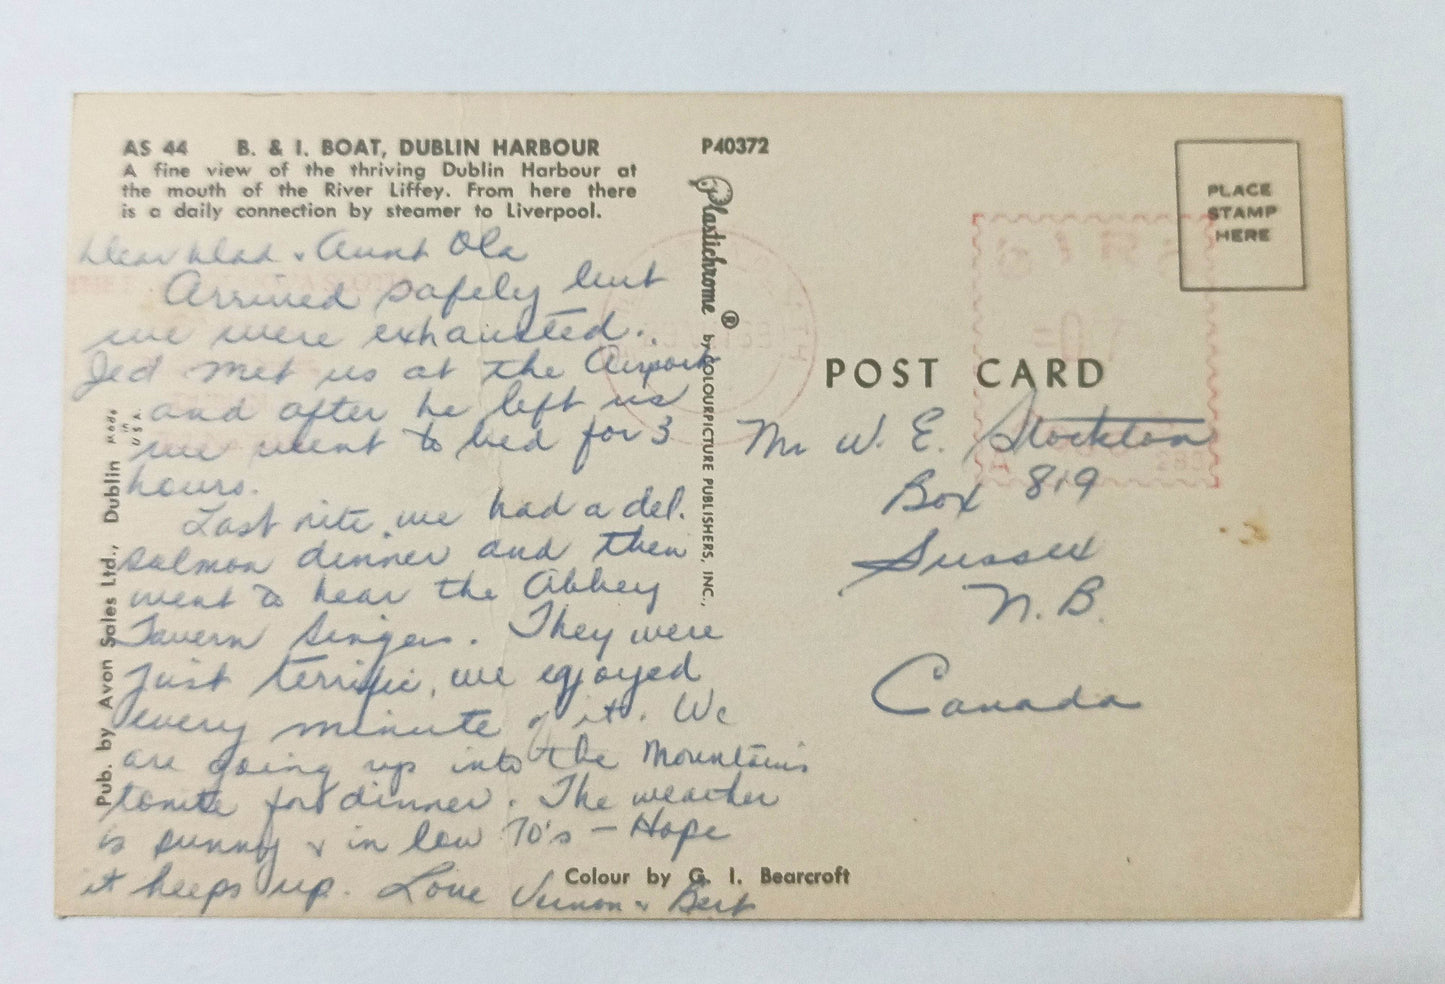 AS 44 B. & I. BOAT, DUBLIN HARBOUR
A fine view of the thriving Dublin Harbour at
the mouth of the River Liffey. From here there
is a daily connection by steamer to Liverpool.
Dear Dad & Aunt Ola
Arrived safely but
we were exhausted.
Jed met us at the Airport
and after he left us
we went to bed for 3
hours.
Last nite we had a del.
salmon dinner and then
went to hear the Abbey
Tavern Singers. They were
just terrific, we enjoyed
every minute of it. We
are going up into the Mountains
tonite for dinner. The weather
is sunny & in low 70's - Hope
it keeps up. Love Vernon & Bert
Pub. by Avon Sales Ltd., Dublin
Made
in
U S A
P40372
Plastichrome ® by COLOURPICTURE PUBLISHERS, INC.,
Colour by G. I. Bearcroft
PLACE
STAMP
HERE
POST CARD
Mr W. E. Stockton
Box 819
Sussex
N.B.
Canada